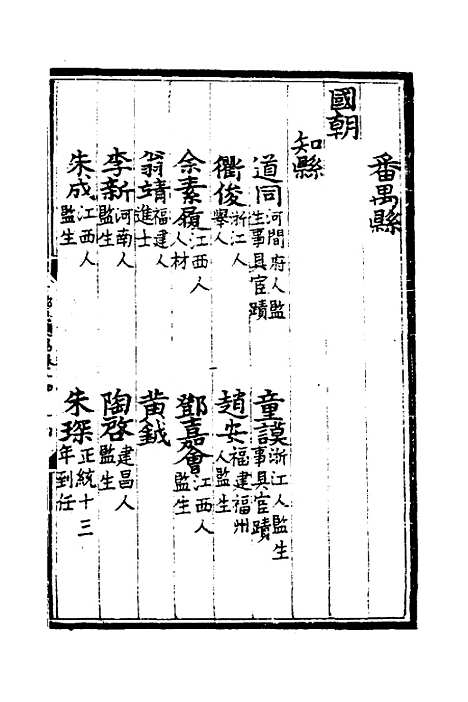 番禺縣
國朝
知縣
道同河間府人監生事具宦蹟
童謨浙江人監生事具宦蹟
衢俊浙江人舉人
趙安福建福州人監生
余素履江西人人材
鄧嘉會江西人監生
翁靖福建人進士
黃鉞
李新河南人監生
陶啓建昌人監生
朱成江西人監生
朱琛正統十三年到任